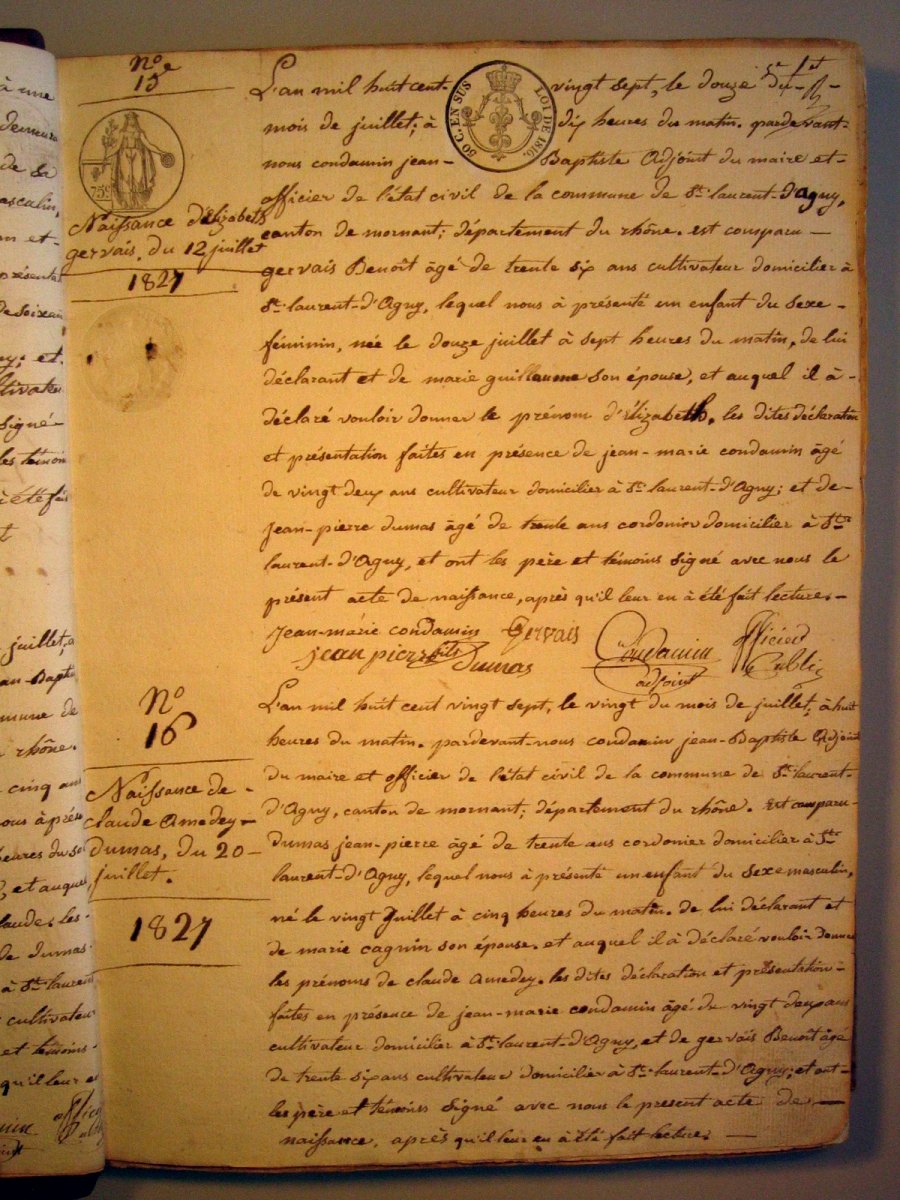 N.o
15
75c
Naissance d'Elizabeth
gervais. du 12 juillet
1827
50 C. EN SUS
LOI DE 1816.
L'an mil huit cent vingt sept, le douze du
mois de juillet; à dix heures du matin. pardevant-
nous condamin jean-Baptiste Adjoint du maire et-
officier de l'état civil de la commune de St. laurent-d'Agny,
canton de mornant; département du rhône. est comparu —
gervais Benoît âgé de trente six ans cultivateur domicilier à
St. laurent-d'Agny, lequel nous à présenté un enfant du sexe-
féminin, née le douze juillet à sept heures du matin, de lui
déclarant et de marie guillaume son épouse, et auquel il à-
déclaré vouloir donner le prénom d'élizabeth. les dites déclaration
et présentation faites en présence de jean-marie condamin âgé
de vingt deux ans cultivateur domicilier à St. laurent-d'Agny; et de-
jean-pierre dumas âgé de trente ans cordonier domicilier à St.
laurent-d'Agny, et ont les père et témoins signé avec nous le
présent acte de naissance, après qu'il leur en à été fait lecture. —
Jean-marie condamin Gervais Condamin officier
jean pierre Dumas adjoint Public
N.o
16
Naissance de-
claude Amedey-
Dumas, du 20-
juillet.
1827
L'an mil huit cent vingt sept, le vingt du mois de juillet; à huit
heures du matin. pardevant-nous condamin jean-Baptiste Adjoint
du maire et officier de l'état civil de la commune de St. laurent-
d'Agny, canton de mornant; département du rhône. est comparu-
dumas jean-pierre âgé de trente ans cordonier domicilier à St.
laurent-d'Agny, lequel nous à présenté un enfant du sexe masculin,
né le vingt juillet à cinq heures du matin. de lui déclarant et
de marie cagnin son épouse. et auquel il à déclaré vouloir donner
les prénoms de claude Amedey. les dites déclaration et présentation-
faites en présence de jean-marie condamin âgé de vingt deux ans
cultivateur domicilier à St. laurent-d'Agny, et de gervais Benoît âgé
de trente six ans cultivateur domicilier à St. laurent-d'Agny; et ont-
les père et témoins signé avec nous le present acte de —
naissance, après qu'il leur en à été fait lecture. —